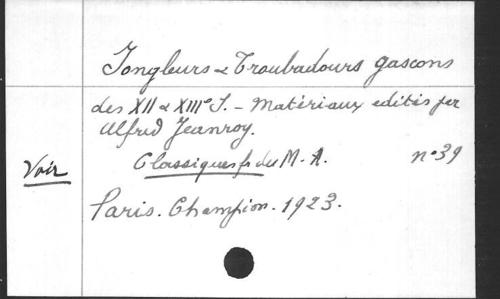 Jongleurs & Troubadours gascons
des XII & XIIIe S. - Matériaux edités per
Alfred Jeanroy.
Voir Classiques fr. du M. A. n°39
Paris. Champion. 1923.